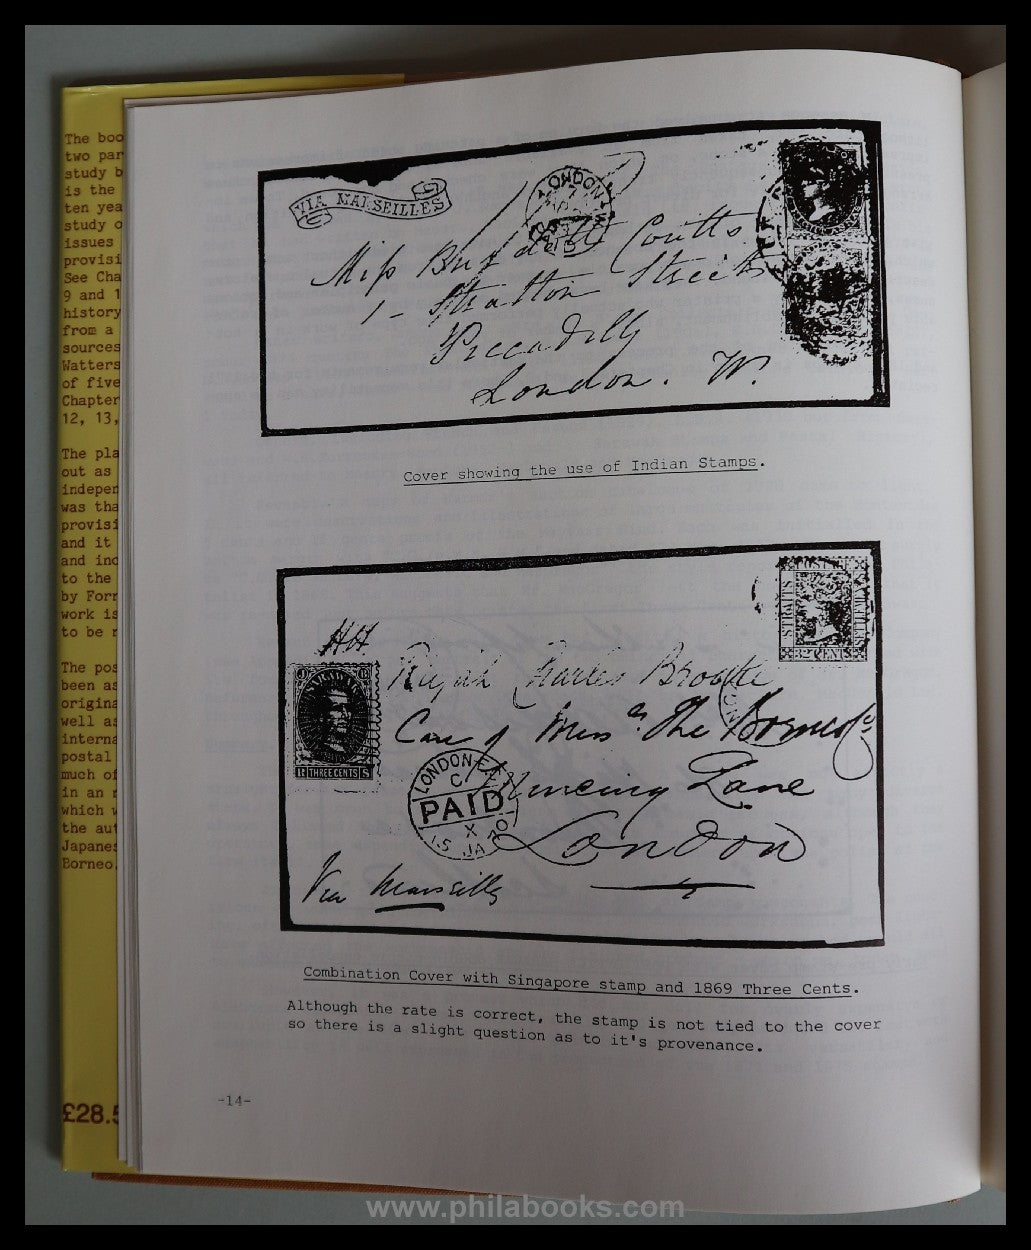 The boo
two par
study b
is the
ten yea
study o
issues
provisi
See Cha
9 and 1
history
from a
sources
Watters
of five
Chapter
12, 13,
The pla
out as
indepen
was tha
provisi
and it
and inc
to the
by Forr
work is
to be r
The pos
been as
origina
well as
interna
postal
much of
in an r
which w
the aut
Japanes
Borneo.
£28.5
VIA MARSEILLES
LONDON
Miss Burdett Coutts
1 - Stratton Street
Piccadilly
London. W.
Cover showing the use of Indian Stamps.
POSTAGE
STRAITS SETTLEMENTS
32 CENTS
SARAWAK
THREE CENTS
Rajah Charles Brooke
Care of Messrs The Borneo Co
Mincing Lane
London
LONDON
C
PAID
X
15 JA 70
Via Marseilles
Combination Cover with Singapore stamp and 1869 Three Cents.
Although the rate is correct, the stamp is not tied to the cover
so there is a slight question as to it's provenance.
-14-
www.philabooks.com